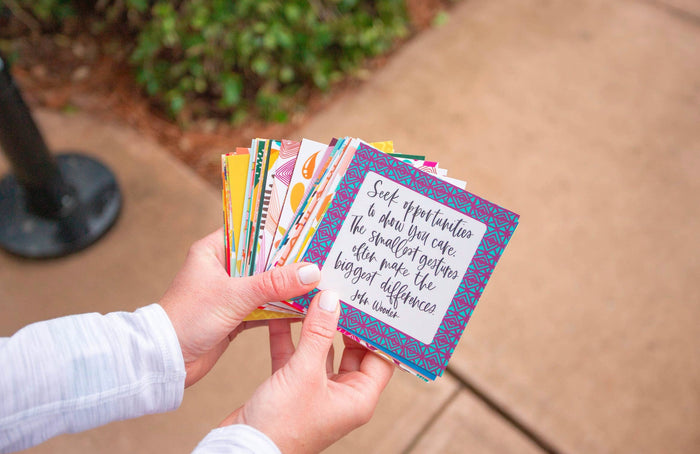 Seek opportunities
to show you care.
The smallest gestures
often make the
biggest differences.
John Wooden